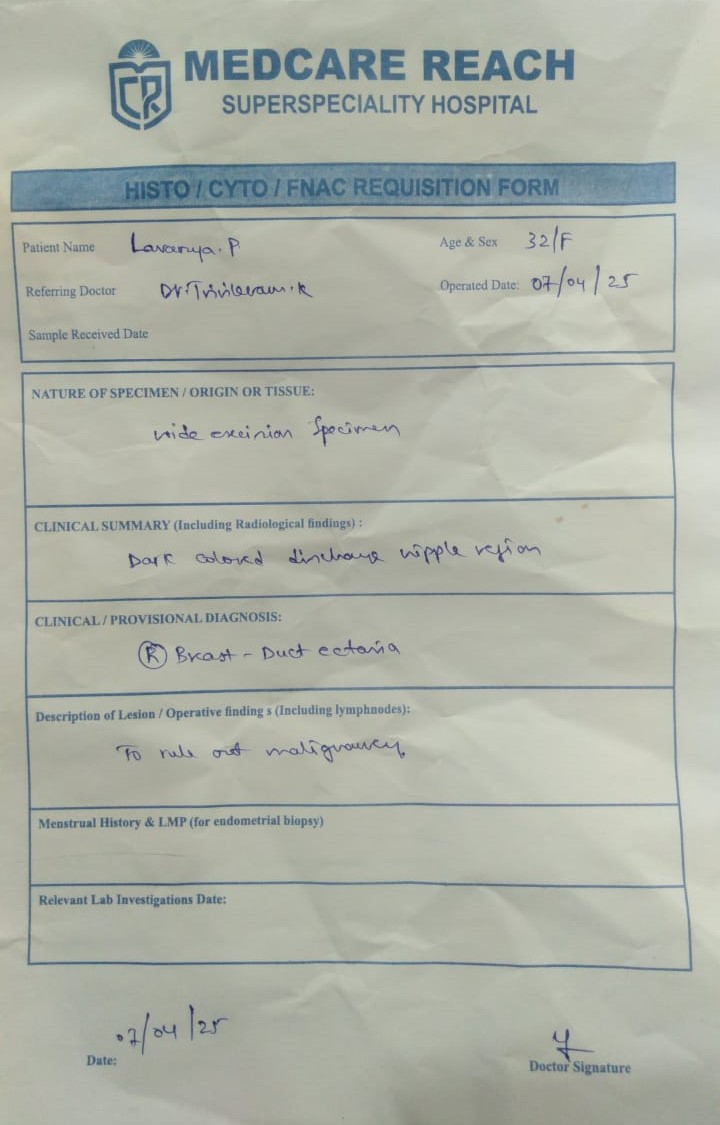 CPR
MEDCARE REACH
SUPERSPECIALITY HOSPITAL
HISTO / CYTO / FNAC REQUISITION FORM
Patient Name Lavanya. P. Age & Sex 32/F
Referring Doctor Dr. K Operated Date: 07/04/25
Sample Received Date
NATURE OF SPECIMEN / ORIGIN OR TISSUE:
wide excision specimen
CLINICAL SUMMARY (Including Radiological findings) :
Dark colored discharge nipple region
CLINICAL / PROVISIONAL DIAGNOSIS:
Ⓡ Breast - Duct ectasia
Description of Lesion / Operative finding s (Including lymphnodes):
To rule out malignancy
Menstrual History & LMP (for endometrial biopsy)
Relevant Lab Investigations Date:
07/04/25
Date:
Doctor Signature